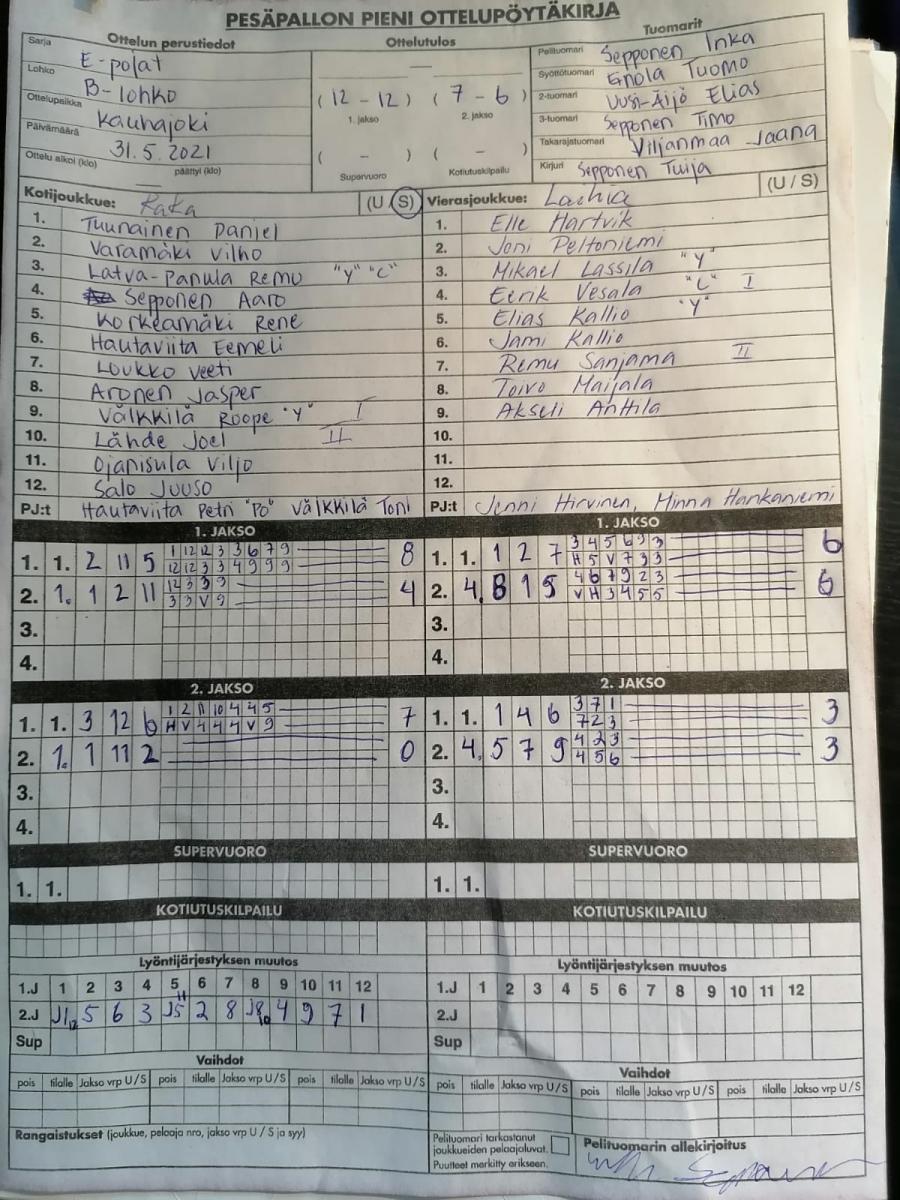 PESÄPALLON PIENI OTTELUPÖYTÄKIRJA
Ottelun perustiedot
Sarja E-pojat
Lohko B-lohko
Ottelupaikka Kauhajoki
Päivämäärä 31.5.2021
Ottelu alkoi (klo) päättyi (klo)
Ottelutulos
( 12 - 12 ) ( 7 - 6 )
1. jakso 2. jakso
( - ) ( - )
Supervuoro Kotiutuskilpailu
Tuomarit
Pelituomari Sepponen Inka
Syöttötuomari Enola Tuomo
2-tuomari Uusi-Äijö Elias
3-tuomari Sepponen Timo
Takarajatuomari Viljanmaa Jaana
Kirjuri Sepponen Tuija
Kotijoukkue: KaKa (U/S)
1. Tuunainen Daniel
2. Varamäki Vilho
3. Latva-Panula Remu "Y" "C"
4. Sepponen Aaro
5. Korkeamäki Rene
6. Hautaviita Eemeli
7. Loukko Veeti
8. Aronen Jasper
9. Välkkilä Roope "Y" I
10. Lähde Joel II
11. Ojanisula Viljo
12. Salo Juuso
PJ:t Hautaviita Petri "PO" Välkkilä Toni
Vierasjoukkue: (U/S)
1. Elle Hartvik
2. Joni Peltoniemi
3. Mikael Lassila "Y"
4. Eerik Vesala "C" I
5. Elias Kallio "Y"
6. Jami Kallio
7. Remu Sanjama II
8. Toivo Maijala
9. Akseli Anttila
10.
11.
12.
PJ:t Jenni Hirvinen, Minna Hankaniemi
1. JAKSO
1. 1. 2 11 5 1 12 12 3 3 6 7 9 8
12 12 3 3 4 9 9 9
2. 1. 1 2 11 12 3 3 9 4
3 3 V 9
3.
4.
1. JAKSO
1. 1. 1 2 7 3 4 5 6 9 3 6
H 5 V 7 3 3
2. 4. 8 1 5 4 6 7 9 2 3 6
V H 3 4 5 5
3.
4.
2. JAKSO
1. 1. 3 12 6 1 2 11 10 4 4 5 7
H V 4 4 4 V 9
2. 1. 1 11 2 0
3.
4.
2. JAKSO
1. 1. 1 4 6 3 7 1 3
7 2 3
2. 4. 5 7 9 4 2 3 3
4 5 6
3.
4.
SUPERVUORO
1. 1.
SUPERVUORO
1. 1.
KOTIUTUSKILPAILU
KOTIUTUSKILPAILU
Lyöntijärjestyksen muutos
1.J 1 2 3 4 5 6 7 8 9 10 11 12
2.J J1 12 5 6 3 J5 11 2 8 J8 10 4 9 7 1
Sup
Lyöntijärjestyksen muutos
1.J 1 2 3 4 5 6 7 8 9 10 11 12
2.J
Sup
Vaihdot
pois tilalle Jakso vrp U/S pois tilalle Jakso vrp U/S pois tilalle Jakso vrp U/S
Vaihdot
pois tilalle Jakso vrp U/S pois tilalle Jakso vrp U/S pois tilalle Jakso vrp U/S
Rangaistukset (joukkue, pelaaja nro, jakso vrp U / S ja syy)
Pelituomari tarkastanut
joukkueiden pelaajaluvat.
Puutteet merkitty erikseen.
Pelituomarin allekirjoitus